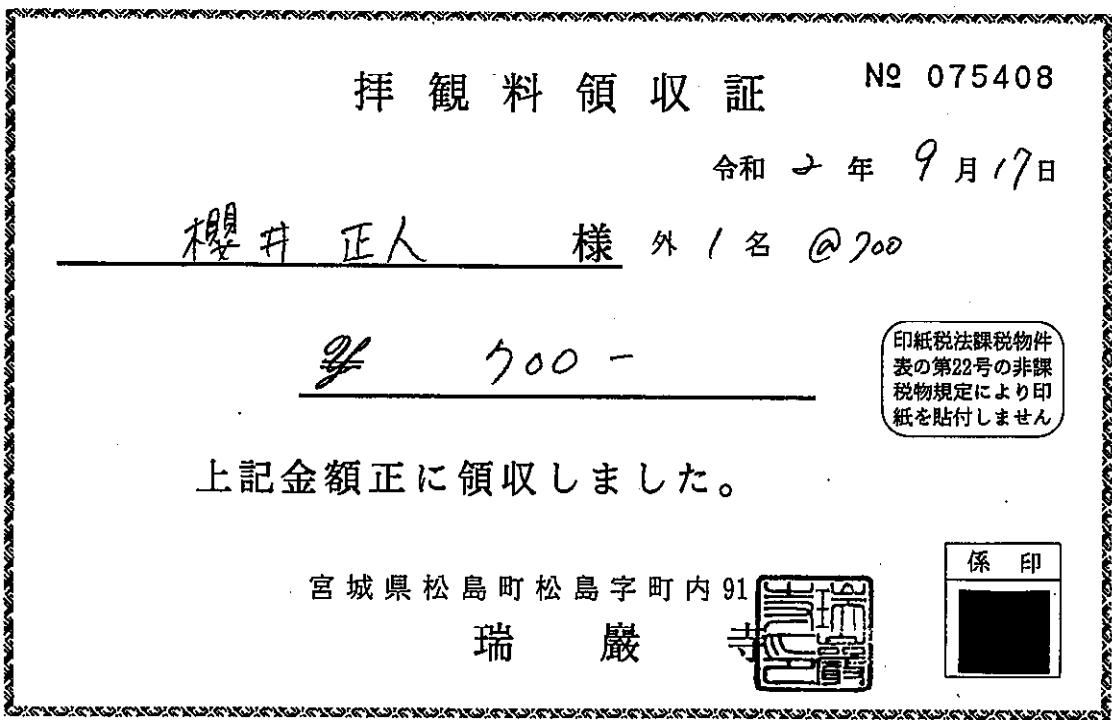 拝観料領収証
№ 075408
令和 2 年 9 月 17 日
櫻井 正人 様 外 1 名 @700
¥ 700-
印紙税法課税物件
表の第22号の非課
税物規定により印
紙を貼付しません
上記金額正に領収しました。
宮城県松島町松島字町内 91
瑞巖寺
係印